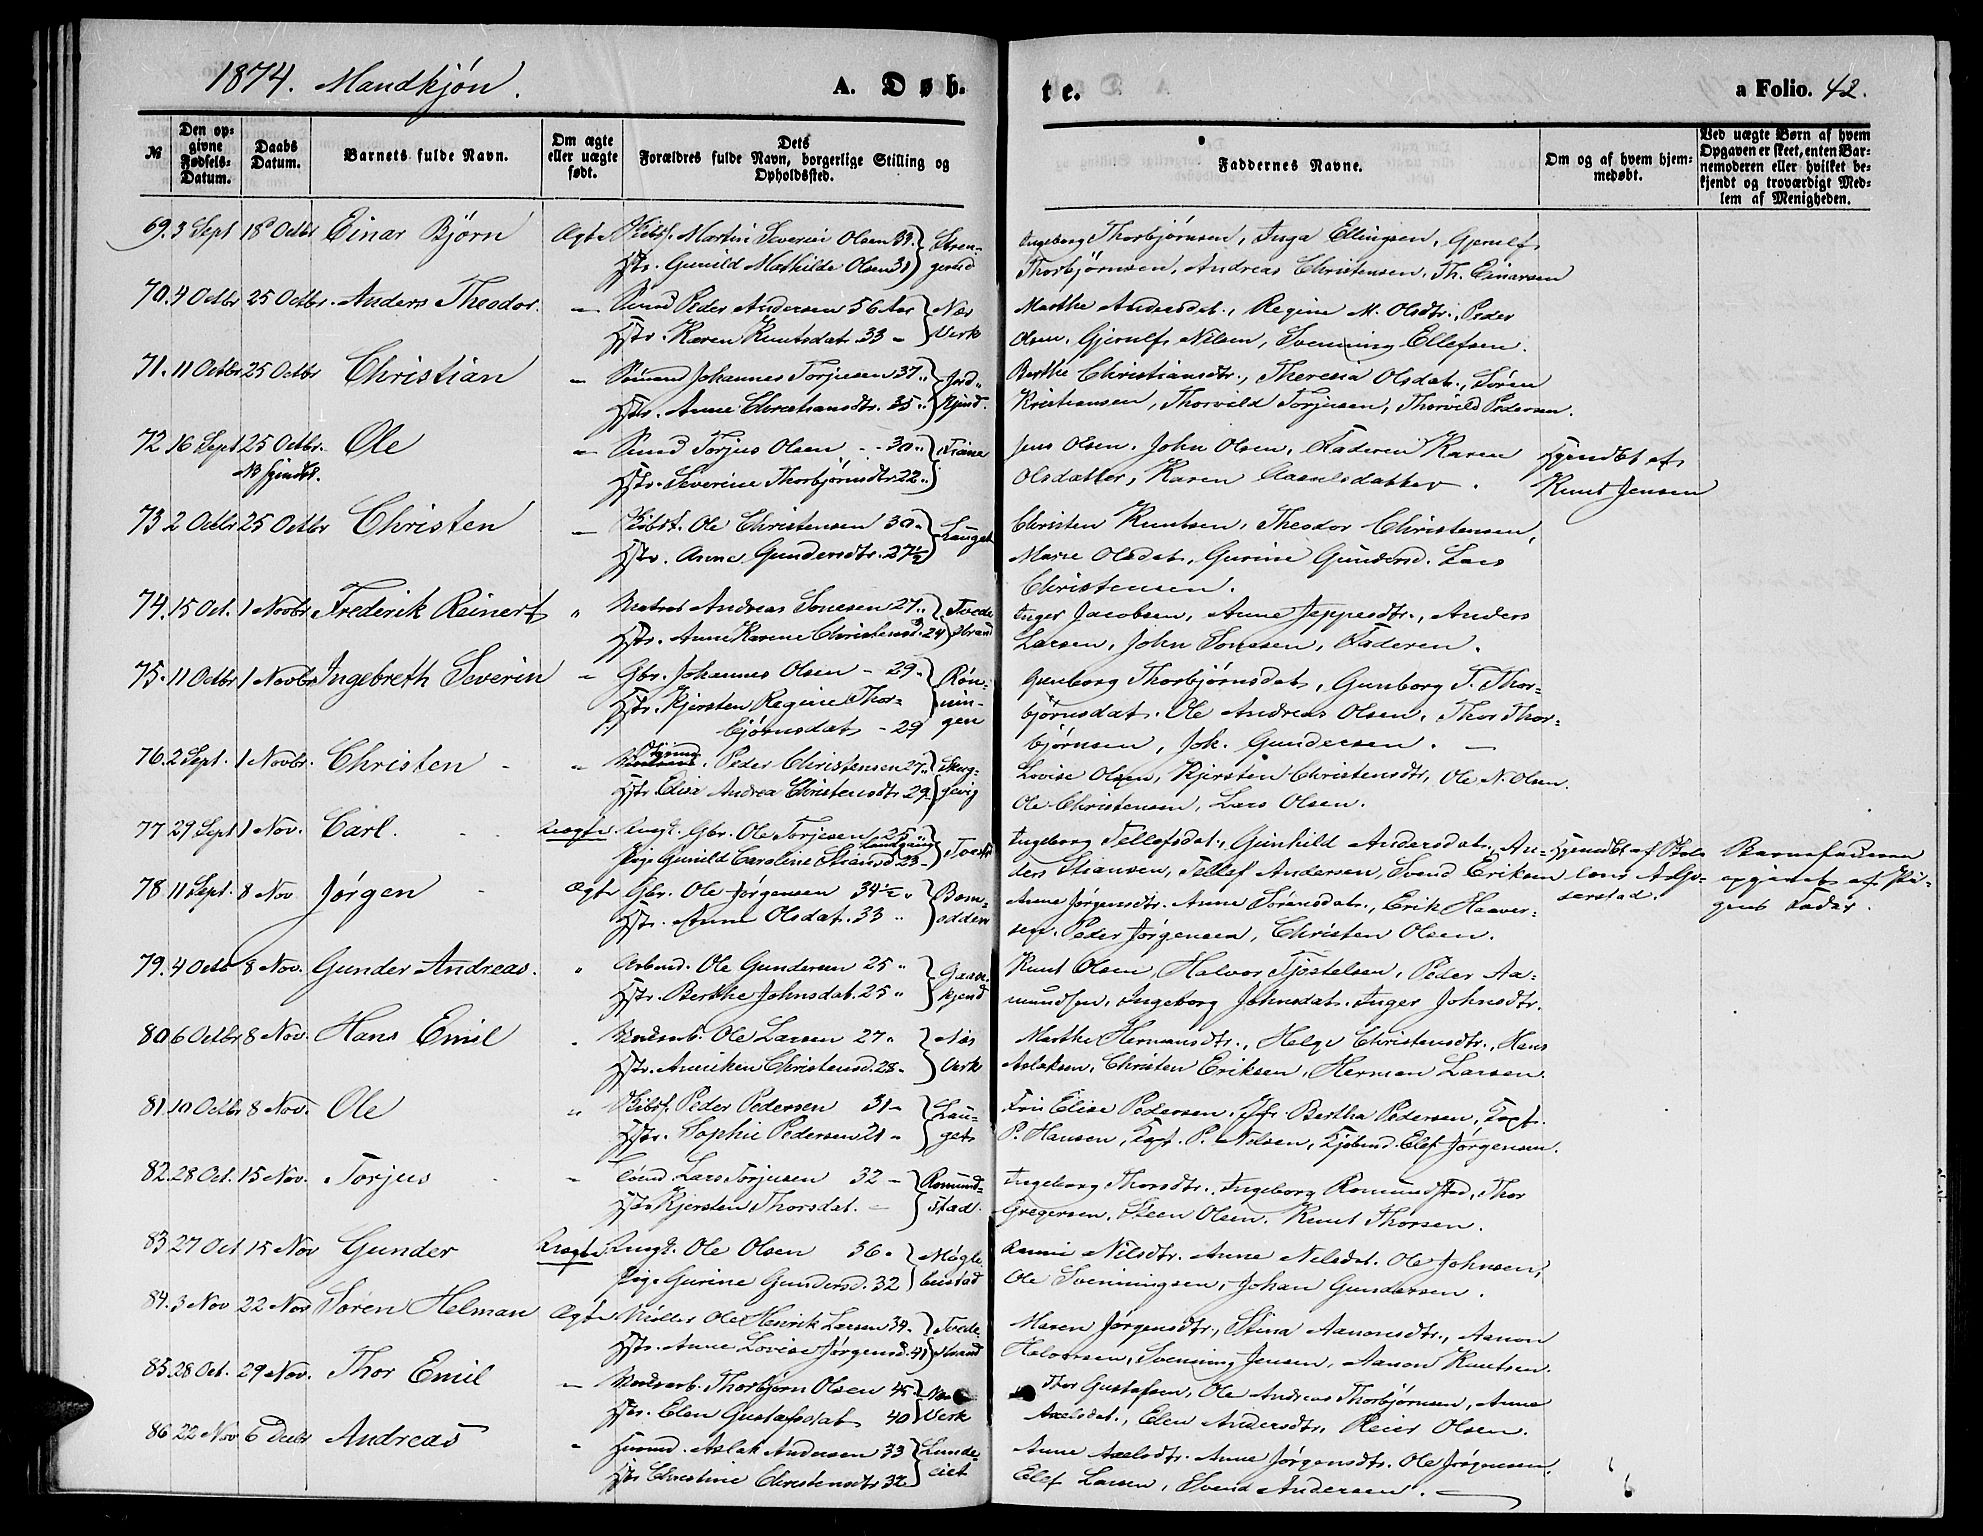 1874. Mandkjøn. A. Døb- te. a Folio. 42.
№ Den opgivne Fødsels-Datum. Daabs Datum. Barnets fulde Navn. Om ægte eller uægte født. Dets Forældres fulde Navn, borgerlige Stilling og Opholdssted. Faddernes Navne. Om og af hvem hjemmedøbt. Ved uægte Børn af hvem Opgaven er skeet, enten Barnemoderen eller hvilket bekjendt og troværdigt Medlem af Menigheden.
69. 3 Sept 18 Octbr Einar Bjørn Ægte Skibsf. Martin Severin Olsen 33. Stren- Ingeborg Thorbjørnsen, Inga Ellingsen, Gjerulf
Hstr. Gunild Mathilde Olsen 31 gerud Thorbjørnsen, Andreas Christensen, Th. Einarsen
70. 4 Octbr 25 Octbr. Anders Theodor. — Smed Peder Andersen 56 Aar Næs Marthe Andersdat., Regine M. Olsdtr., Peder
Hstr. Karen Knutsdat. 33 - Verk Olsen, Gjerulf Nilsen, Svenning Ellefsen.
71. 11 Octbr 25 Octbr Christian — Sømand Johannes Torjusen 37 " Berthe Christiansdtr., Theresia Olsdat., Søren
Hstr. Anne Christiansdtr. 35 " Kristiansen, Thorvild Torjusen, Thorvild Pedersen.
72 16 Sept 25 Octbr. Ole — Smd Torjus Olsen - - 30 " Fiane Jens Olsen, John Olsen, Faderen Karen Hjemdbt af
NB hjmdbt. Hstr. Severine Thorbjørnsdtr. 22 " Olsdatter, Karen Aasulsdatter. Knut Jensen
73 2 Octbr 25 Octbr Christen — Skibst. Ole Christensen 30 " Lauget Christen Knutsen, Theodor Christensen,
Hstr. Anne Gundersdtr. 27½ Marie Olsdat, Gurine Gundersd. Lars
Christensen.
74. 15 Oct. 1 Novbr. Frederik Reinert " Matros Andreas Sonesen 27 " Tvede- Inger Jacobsen, Anne Jeppesdtr., Anders
Hstr. Anne Karine Christensd. 24 strand Larsen, John Sonesen, Faderen.
75. 11 Octbr 1 Novbr Ingebreth Severin - Gbr. Johannes Olsen - 29 " Røn- Gunborg Thorbjørnsdat, Gunborg T. Thor-
Hstr. Kjersten Regine Thor- nin- bjørnsdat. Ole Andreas Olsen, Thor Thor-
bjørnsdat - 29 gen bjørnsen, Joh. Gundersen. —
76. 2 Sept. 1 Novbr. Christen - " Peder Christensen 27 " Skug- Lovise Olsen, Kjersten Christensdtr, Ole N. Olsen
Hstr. Elise Andrea Christensdtr 29 gevig Ole Christensen, Lars Olsen.
77 29 Sept 1 Nov. Carl. Uægte. Ungk. Gbr. Ole Torjesen 25 " Ingeborg Tellefsdat., Gunhild Andersdat. An- Hjemdbt af Barnefaderen
Pige Gunild Caroline Stiansd 23 ders Stiansen, Tellef Andersen, Svend Eriksen opgivet af Pi-
78 11 Sept. 8 Nov Jørgen - Ægte Gbr. Ole Jørgensen 34½ " Bom- Anne Jørgensdtr. Anne Sørensdat., Erik Haaver- gens Fader.
Hstr. Anne Olsdat. 33 " odden sen. Peder Jørgensen, Christen Olsen.
79. 4 Octb 8 Nov. Gunder Andreas. " Arbmd. Ole Gundersen 25 " Knut Olsen, Halvor Tjostelsen, Peder Aa-
Hstr. Berthe Johnsdat. 25 " kjend mundsen, Ingeborg Johnsdat. Inger Johnsdtr.
80 6 Octbr 8 Nov. Hans Emil " Ole Larsen 27 " Næs Marthe Hermansdtr., Helge Christensdtr., Hans
Hstr. Anniken Christensd. 28 " Verk Aslaksen, Christen Eriksen, Herman Larsen.
81. 10 Octbr 8 Nov. Ole " Skibsf. Peder Pedersen 31 - Lau- Fru Elise Pedersen. Jfr. Bertha Pedersen,
Hstr. Sophie Pedersen 21 " get P. Hansen, Kpt. P. Nilsen, Elef Jørgensen.
82. 28 Oct. 15 Nov. Torjus " Lars Torjusen 32 - Romund- Ingeborg Thorsdtr. Ingeborg Romundstad, Thor
Hstr Kjersten Thorsdat. - stad. Gregersen, Steen Olsen. Knut Thorsen.
83 27 Oct 15 Nov Gunder Uægte Ungk. Ole Olsen 36. Møgle- Nilsdtr. Anne Nilsdat. Ole Johnsen,
Pige Gurine Gundersd. 32 bustad Ole Svenningsen, Johan Gundersen.
84. 3 Nov 22 Nov Søren Helman Ægte Møller Ole Henrik Larsen 34. Tvede- Maren Jørgensdtr., Stina Aanonsdtr., Aanon
Hstr. Anne Lovise Jørgensd. 41 strand Halvorsen, Svenning Jensen, Aanon Knutsen.
85. 28 Oct. 29 Nov. Thor Emil — Thorbjørn Olsen 45 Thor Gustafsen, Ole Andreas Thorbjørnsen, Anne
Hstr. Elen Gustafsdat 40 Verk Axelsdat., Elen Andersdtr, Reier Olsen.
86 22 Nov 6 Decbr Andreas " Husmd. Aslak Andersen 33 Lunde- Anne Axelsdtr. Anne Jørgensdtr. Ole Jørgensen.
Hstr Christine Christensdtr 32 eiet Elef Larsen, Svend Andersen. —